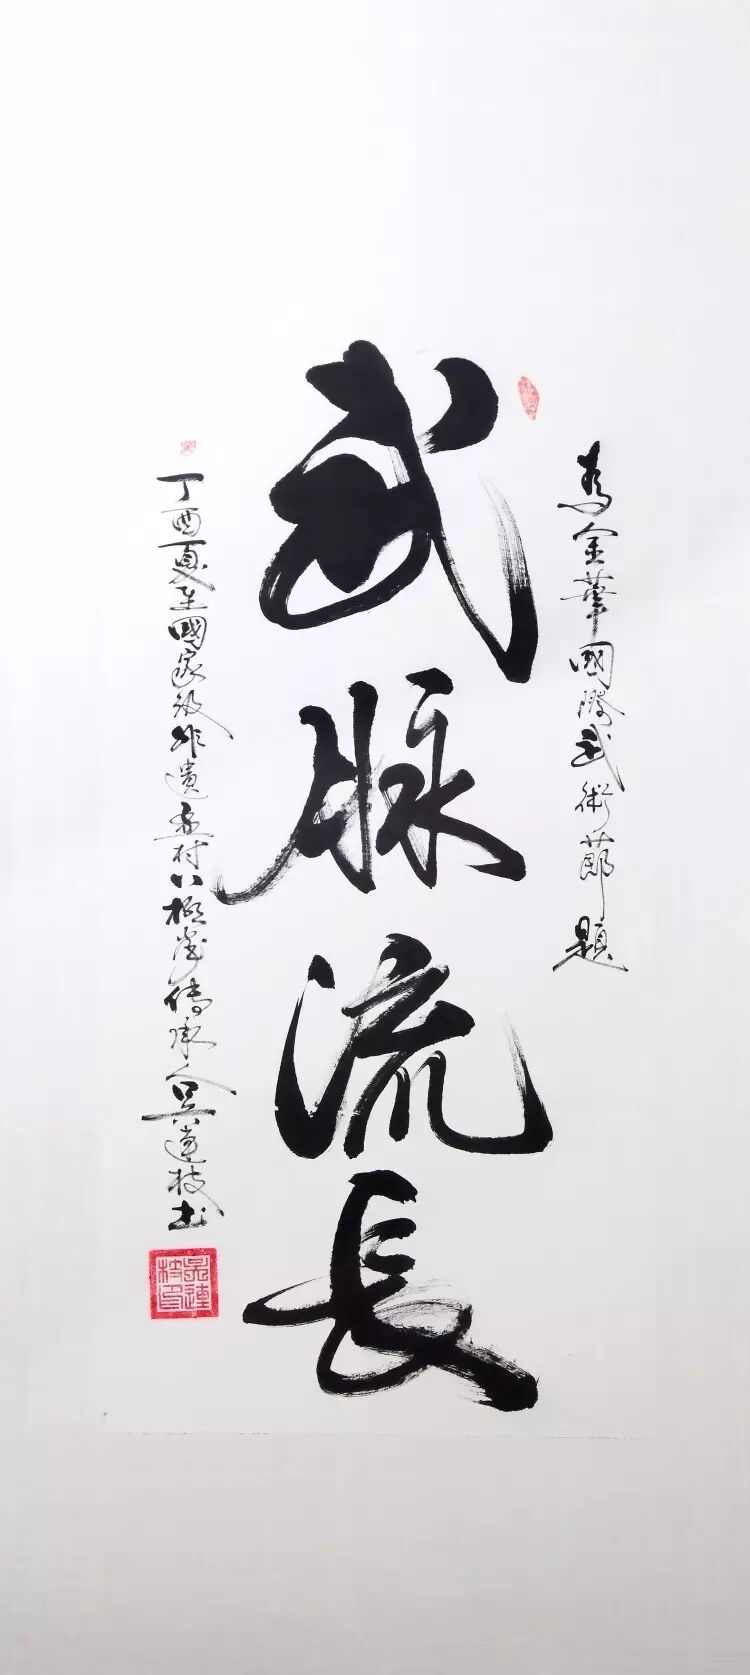 為金華國際武術節題
武脉流長
丁酉夏至國家級非遺孟村八極拳傳承人吳連枝书
吳連枝印